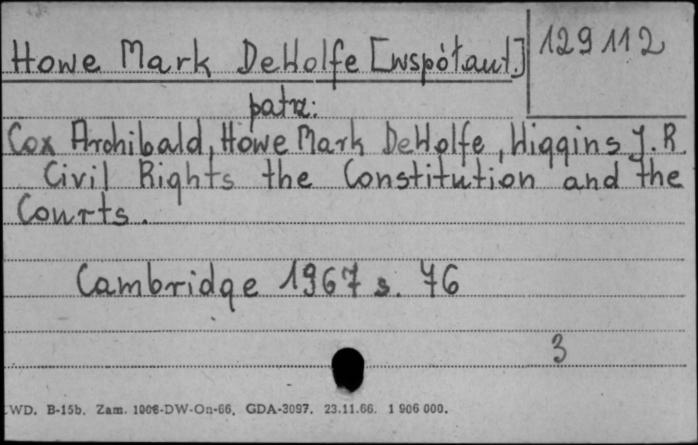 Howe Mark DeWolfe [współaut.]
129 112
patrz:
Cox Archibald, Howe Mark DeWolfe, Higgins J.R.
Civil Rights the Constitution and the
Courts.
Cambridge 1967 s. 76
3
WD. B-15b. Zam. 1006-DW-On-66. GDA-3097. 23.11.66. 1 906 000.